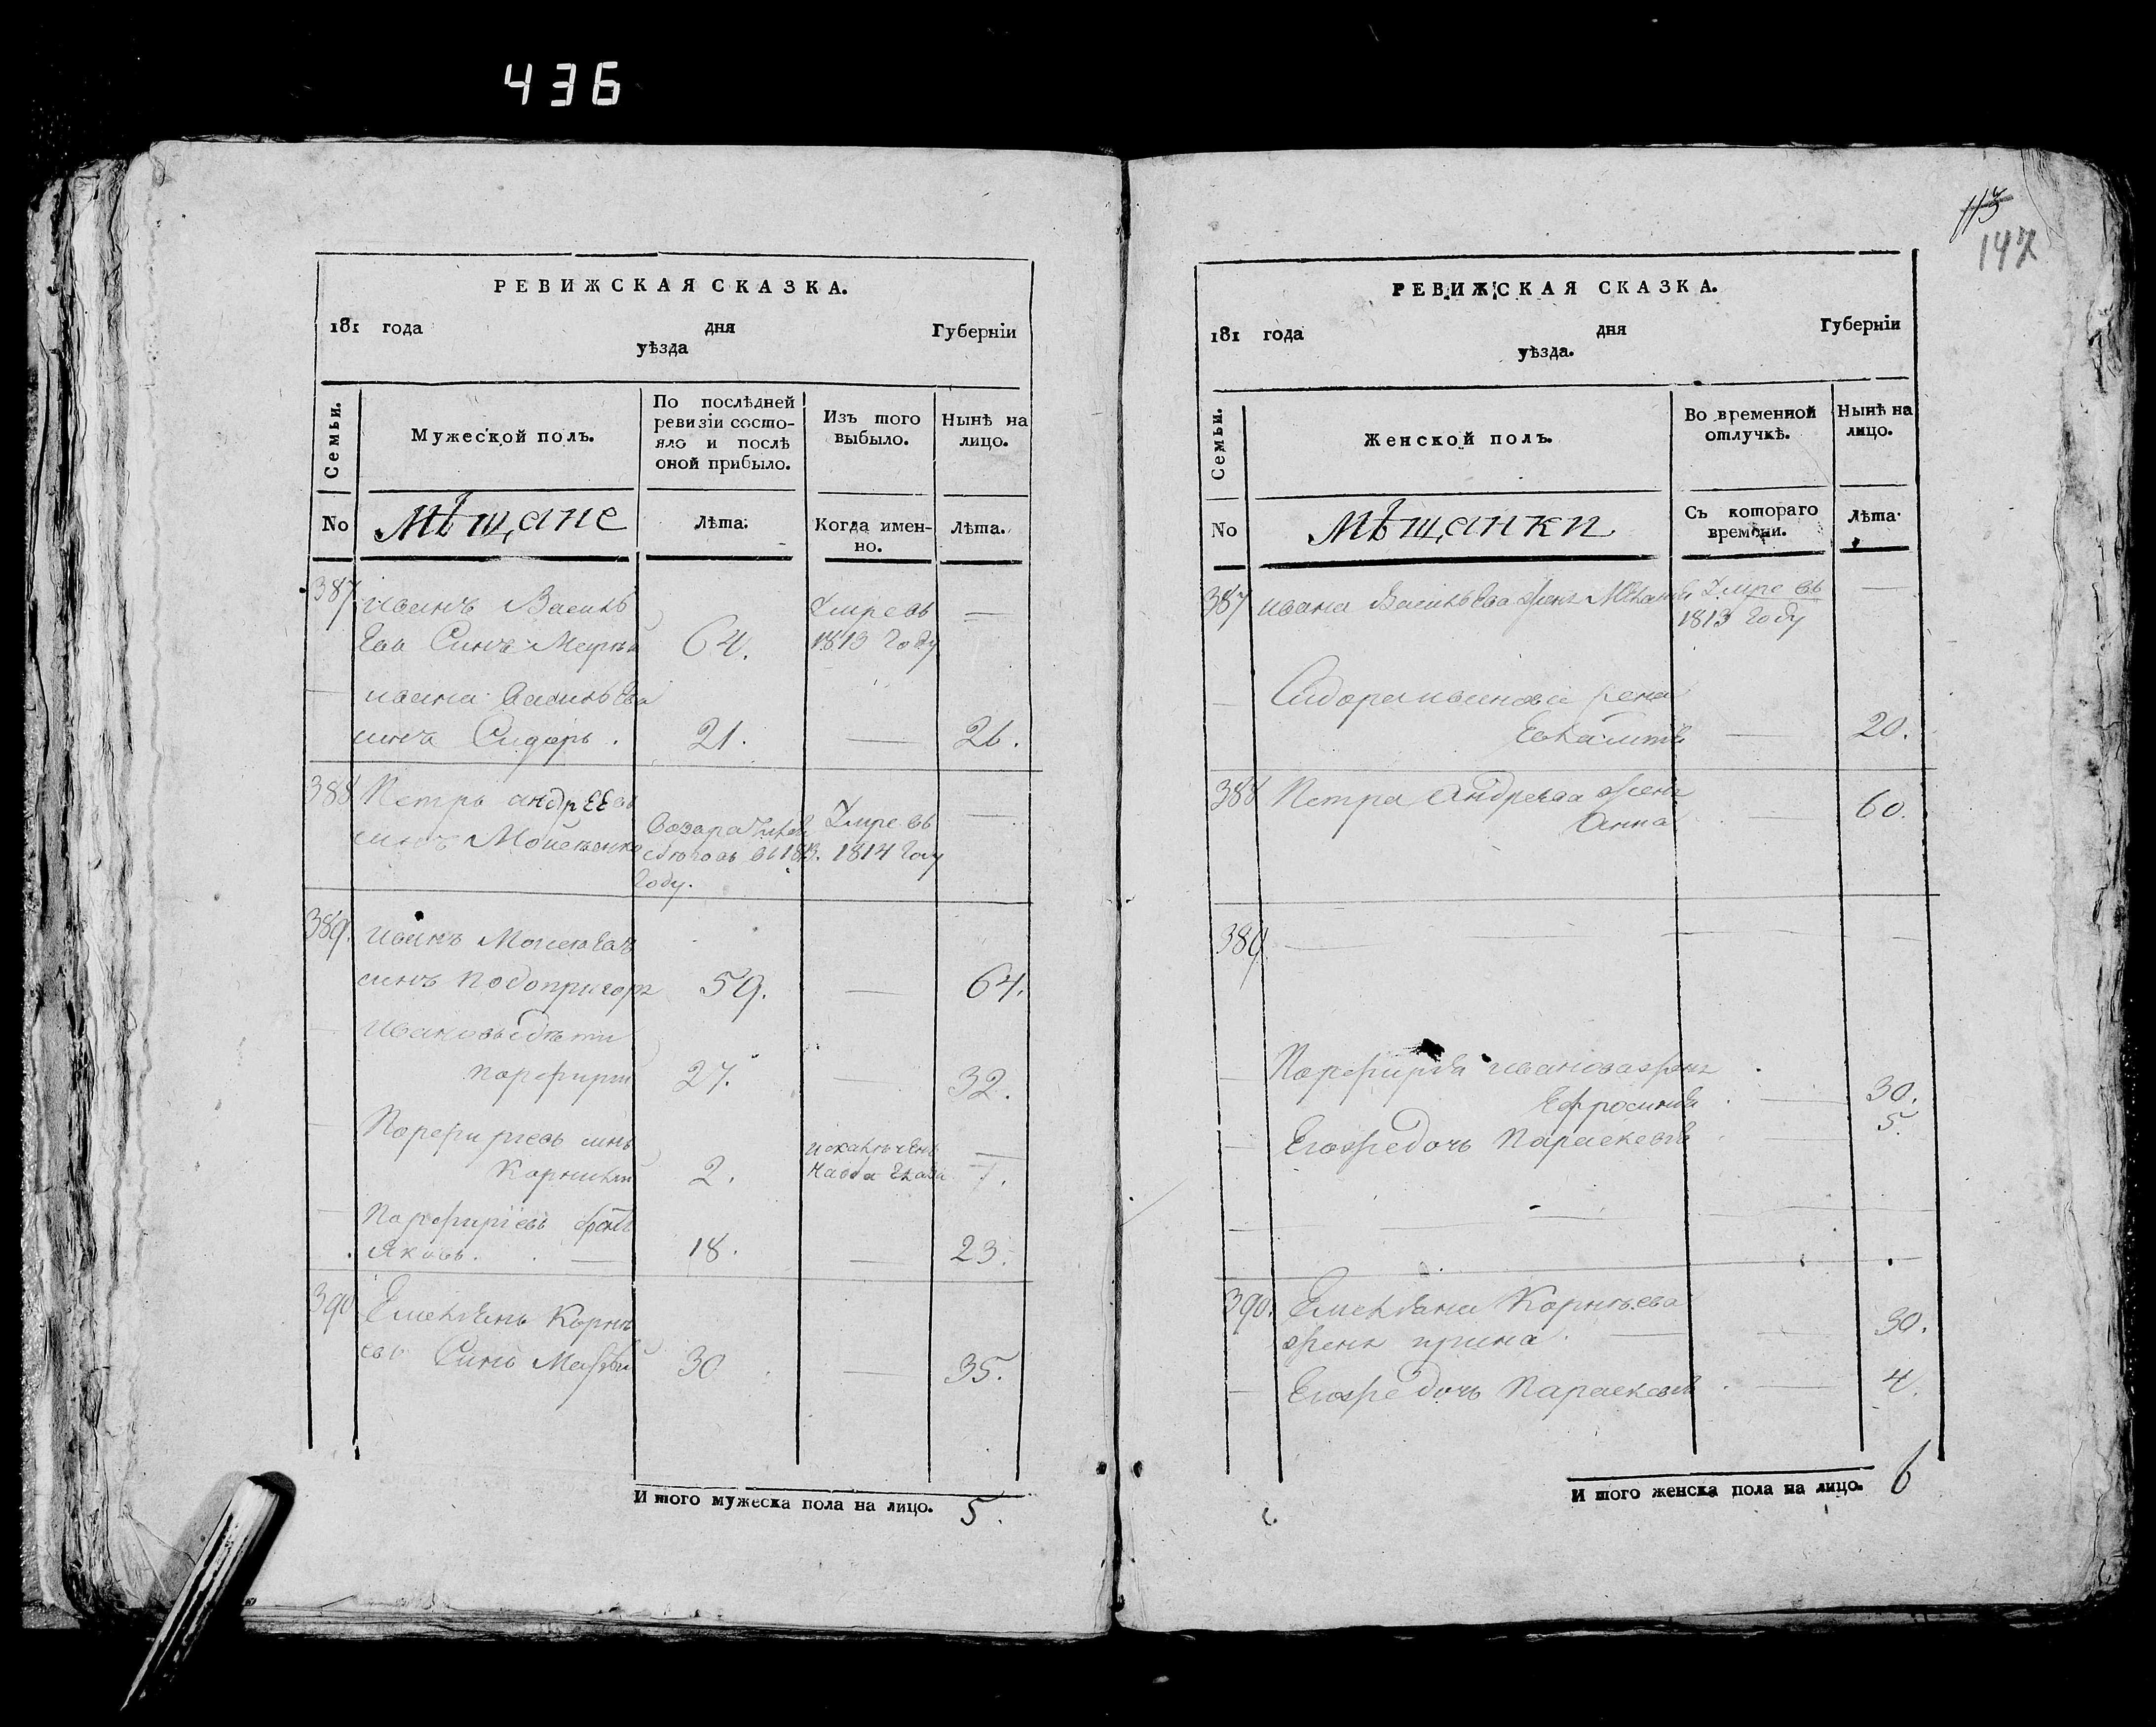 436
РЕВИЖСКАЯ СКАЗКА.
181 года дня Губерніи
уѣзда
Семьи.
Мужеской полъ.
По послѣдней
ревизіи состо-
яло и послѣ
оной прибыло.
Изъ того
выбыло.
Нынѣ на
лицо.
No
Мѣщане
Лѣта.
Когда имен-
но.
Лѣта.
387 Иванъ Василь
евъ Синъ 64.
Умре въ
1813 году —
— Ивана Васильева
синъ Сидоръ. 21. — 26.
388 Петръ андрѣевъ
синъ
въ 1813.
году.
Умре въ
1814 году —
389. Иванъ Моисеевъ
синъ Подопригора 59. — 64.
— Ивановы дѣти
Порфирій 27. — 32.
— Порфиріевъ синъ
Корнилій 2. 7.
— Порфиріевъ братъ
Яковъ. — 18. — 23.
390 Емельянъ Корнѣ
евъ Синъ 30 — 35.
И того мужеска пола на лицо. 5.
113
147
РЕВИЖСКАЯ СКАЗКА.
181 года дня Губерніи
уѣзда.
Семьи.
Женской полъ.
Во временной
отлучкѣ.
Нынѣ на
лицо.
No
Мѣщанки
Съ котораго
времени.
Лѣта.
387 Ивана Васильева жена Умре въ —
1813 году
— Сидора Иванова жена
— 20.
388 Петра Андреева жена
Анна — 60.
389 —
— Порфирія Иванова жена
Ефросинія — 30.
— Егожъ дочь Параскевія 5.
390. Емельяна Корнѣева
жена Ирина. — 30.
— Егожъ дочь Параскевія. — 4.
И того женска пола на лицо. 6